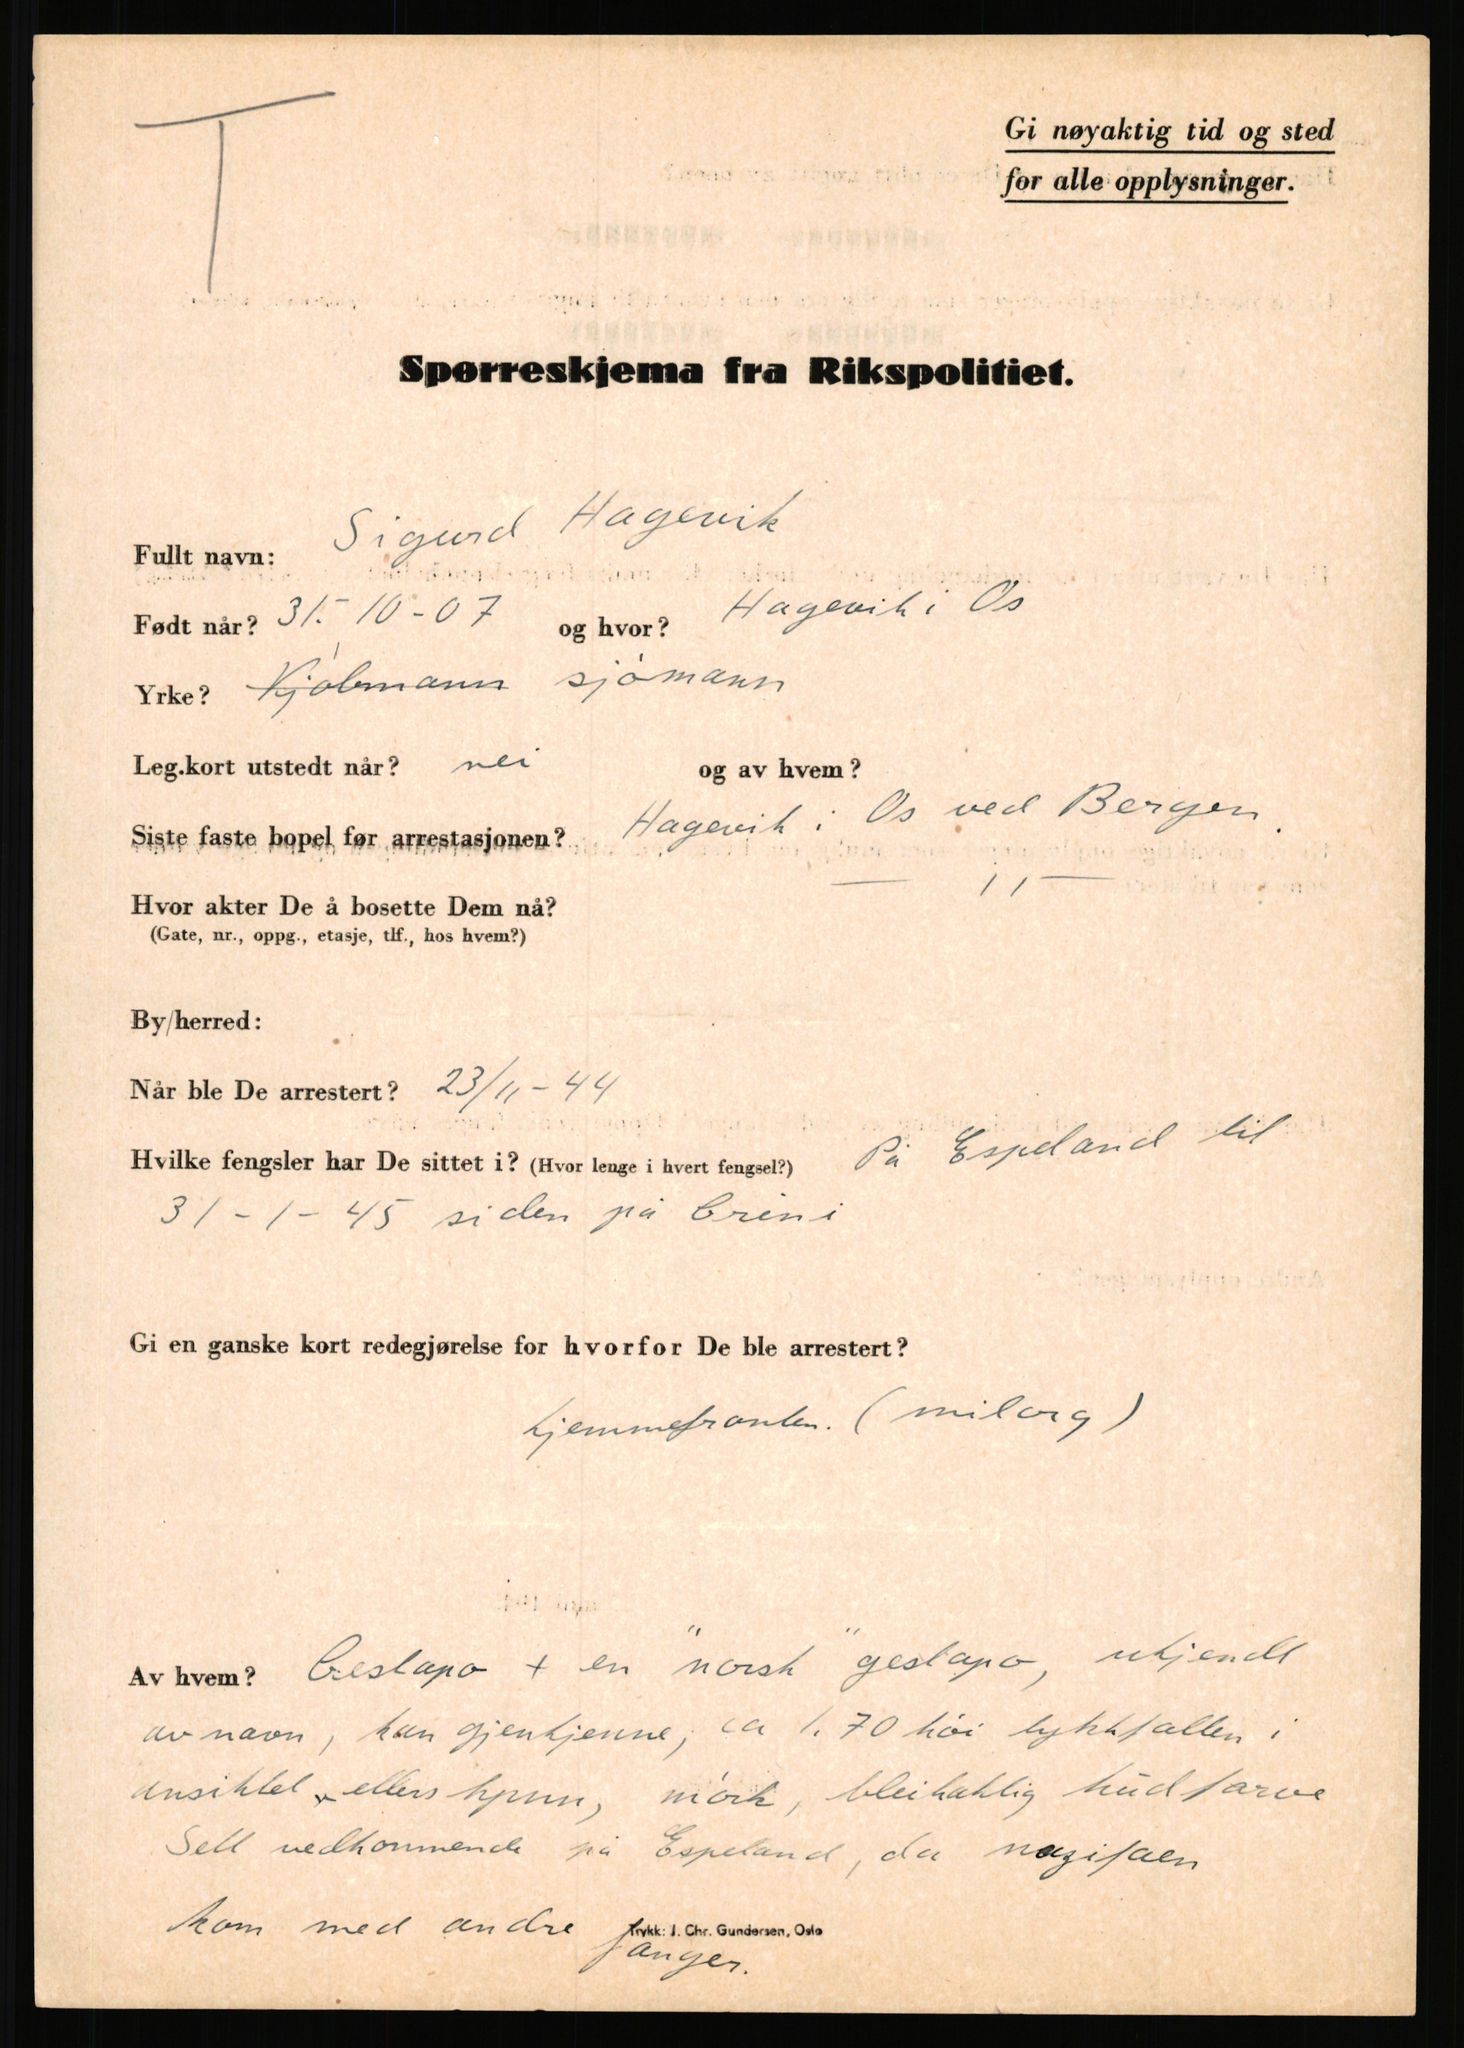 T
Gi nøyaktig tid og sted
for alle opplysninger.
Spørreskjema fra Rikspolitiet.
Fullt navn: Sigurd Hagevik
Født når? 31.-10-07 og hvor? Hagevik i Os
Yrke? Kjøbmann sjómann
Leg.kort utstedt når? nei og av hvem?
Siste faste bopel før arrestasjonen? Hagevik i Os ved Bergen.
Hvor akter De å bosette Dem nå? — 11 —
(Gate, nr., oppg., etasje, tlf., hos hvem?)
By/herred:
Når ble De arrestert? 23/11-44
Hvilke fengsler har De sittet i? (Hvor lenge i hvert fengsel?) På Espeland til
31-1-45 siden på Grini
Gi en ganske kort redegjørelse for hvorfor De ble arrestert?
hjemmefronten. (milorg)
Av hvem? Gestapo + en "norsk" gestapo, ukjendt
av navn, kan gjenkjenne, ca 1.70 hói tykkfallen i
ansiktet ellers, mórk, bleikahlig hudfarve
Sett vedkommende på Espeland, da nazifaen
kom med andre fanger.
Trykk: J. Chr. Gundersen, Oslo